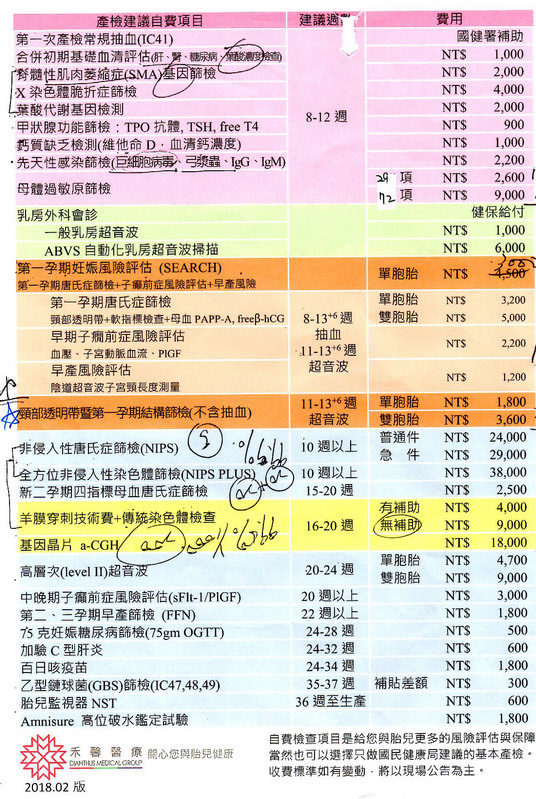 產檢建議自費項目 建議週數 費用
第一次產檢常規抽血(IC41) 國健署補助
合併初期基礎血清評估(肝、腎、糖尿病、葉酸濃度檢查) NT$ 1,000
脊髓性肌肉萎縮症(SMA)基因篩檢 NT$ 2,000
X 染色體脆折症篩檢 NT$ 4,000
葉酸代謝基因檢測 NT$ 2,000
甲狀腺功能篩檢：TPO 抗體, TSH, free T4 8-12 週 NT$ 900
鈣質缺乏檢測(維他命 D，血清鈣濃度) NT$ 1,000
先天性感染篩檢(巨細胞病毒、弓漿蟲、IgG、IgM) NT$ 2,200
母體過敏原篩檢 29 項 NT$ 2,600
72 項 NT$ 9,000
乳房外科會診 健保給付
一般乳房超音波 NT$ 1,000
ABVS 自動化乳房超音波掃描 NT$ 6,000
第一孕期妊娠風險評估 (SEARCH) 單胞胎 NT$ 4,500
第一孕期唐氏症篩檢+子癲前症風險評估+早產風險
第一孕期唐氏症篩檢 單胞胎 NT$ 3,200
頸部透明帶+軟指標檢查+母血 PAPP-A, freeβ-hCG 8-13+6 週 雙胞胎 NT$ 5,000
早期子癲前症風險評估 抽血
血壓、子宮動脈血流、PlGF 11-13+6 週 NT$ 2,200
早產風險評估 超音波
陰道超音波子宮頸長度測量 NT$ 1,200
頸部透明帶暨第一孕期結構篩檢(不含抽血) 11-13+6 週 單胞胎 NT$ 1,800
超音波 雙胞胎 NT$ 3,600
非侵入性唐氏症篩檢(NIPS) 10 週以上 普通件 NT$ 24,000
急 件 NT$ 29,000
全方位非侵入性染色體篩檢(NIPS PLUS) 10 週以上 NT$ 38,000
新二孕期四指標母血唐氏症篩檢 15-20 週 NT$ 2,500
羊膜穿刺技術費+傳統染色體檢查 16-20 週 有補助 NT$ 4,000
無補助 NT$ 9,000
基因晶片 a-CGH NT$ 18,000
高層次(level II)超音波 20-24 週 單胞胎 NT$ 4,700
雙胞胎 NT$ 9,000
中晚期子癲前症風險評估(sFlt-1/PlGF) 20 週以上 NT$ 3,000
第二、三孕期早產篩檢 (FFN) 22 週以上 NT$ 1,800
75 克妊娠糖尿病篩檢(75gm OGTT) 24-28 週 NT$ 500
加驗 C 型肝炎 24-32 週 NT$ 600
百日咳疫苗 24-34 週 NT$ 1,800
乙型鏈球菌(GBS)篩檢(IC47,48,49) 35-37 週 補貼差額 NT$ 300
胎兒監視器 NST 36 週至生產 NT$ 600
Amnisure 高位破水鑑定試驗 NT$ 1,800
禾馨醫療 關心您與胎兒健康
DIANTHUS MEDICAL GROUP
2018.02 版
自費檢查項目是給您與胎兒更多的風險評估與保障
當然也可以選擇只做國民健康局建議的基本產檢。
收費標準如有變動，將以現場公告為主。